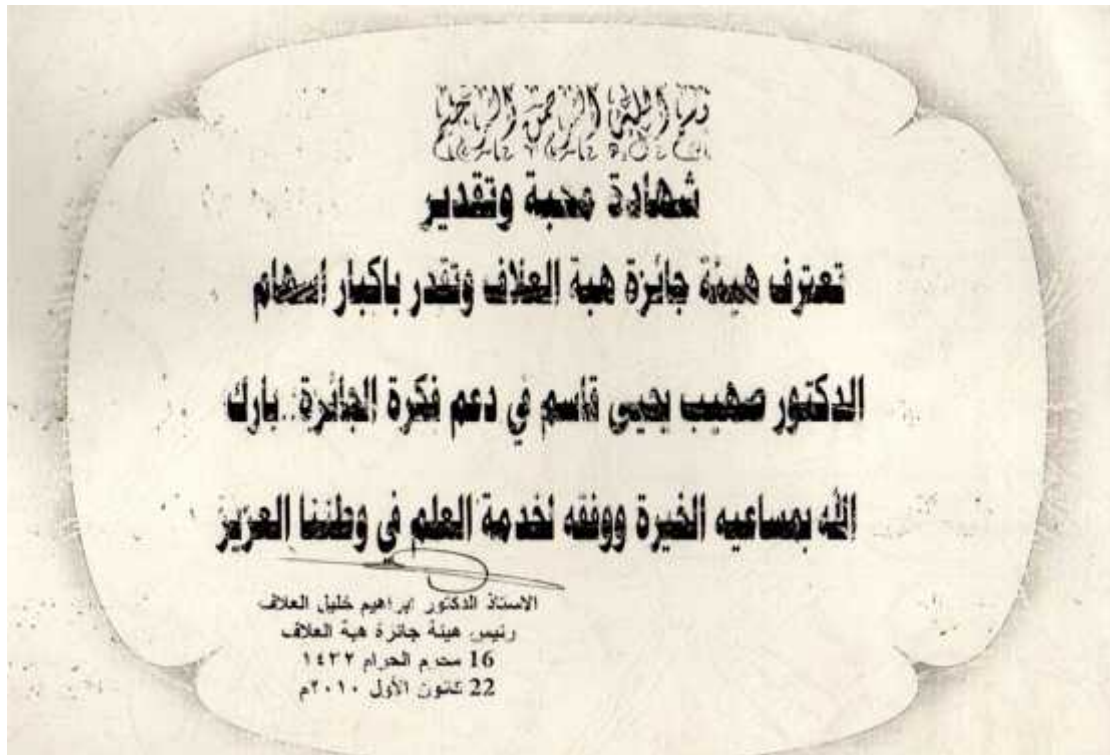 بسم الله الرحمن الرحيم
شهادة محبة وتقدير
تعترف هيئة جائزة هبة العلاف وتقدر باكبار اسهام
الدكتور صهيب يحيى قاسم في دعم فكرة الجائزة..بارك
الله بمساعيه الخيرة ووفقه لخدمة العلم في وطننا العزيز
الاستاذ الدكتور ابراهيم خليل العلاف
رئيس هيئة جائزة هبة العلاف
16 محرم الحرام ١٤٣٢
22 كانون الأول ٢٠١٠م